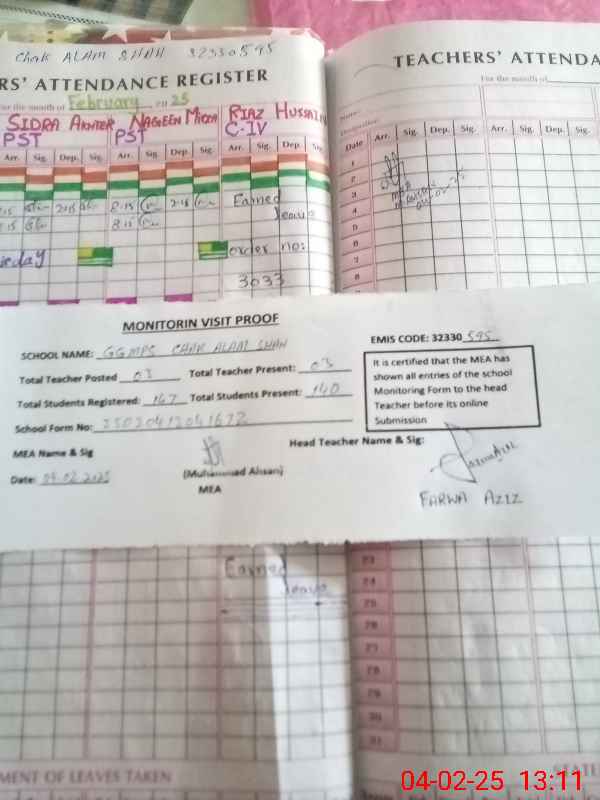 Chak ALAM SHAH 32330595
RS' ATTENDANCE REGISTER
For the month of February 2025
SIDRA AKHTER NAGEEN MIRZA RIAZ HUSSAIN
PST PST C-IV
Arr. Sig. Dep. Sig. Arr. Sig. Dep. Sig. Arr. Sig. Dep. Sig.
8-15 2-15 Earned
8-15 leave
order no:
3033
TEACHERS' ATTENDA
For the month of
Name:
Designation:
Date Arr. Sig. Dep. Sig. Arr. Sig. Dep. Sig.
1
2
3
4
5
6
7
8
MEA
MONITORIN VISIT PROOF
SCHOOL NAME: GGMPS CHAK ALAM SHAH
EMIS CODE: 32330 595
Total Teacher Posted 03 Total Teacher Present: 03
Total Students Registered: 147 Total Students Present: 140
School Form No:
It is certified that the MEA has
shown all entries of the school
Monitoring Form to the head
Teacher before its online
Submission
MEA Name & Sig
Head Teacher Name & Sig:
Date: 04.02.2025
(Muhammad Ahsan)
MEA
FARWA AZIZ
Earned
leave
23
24
25
26
27
28
29
30
31
MENT OF LEAVES TAKEN
STATE
04-02-25 13:11